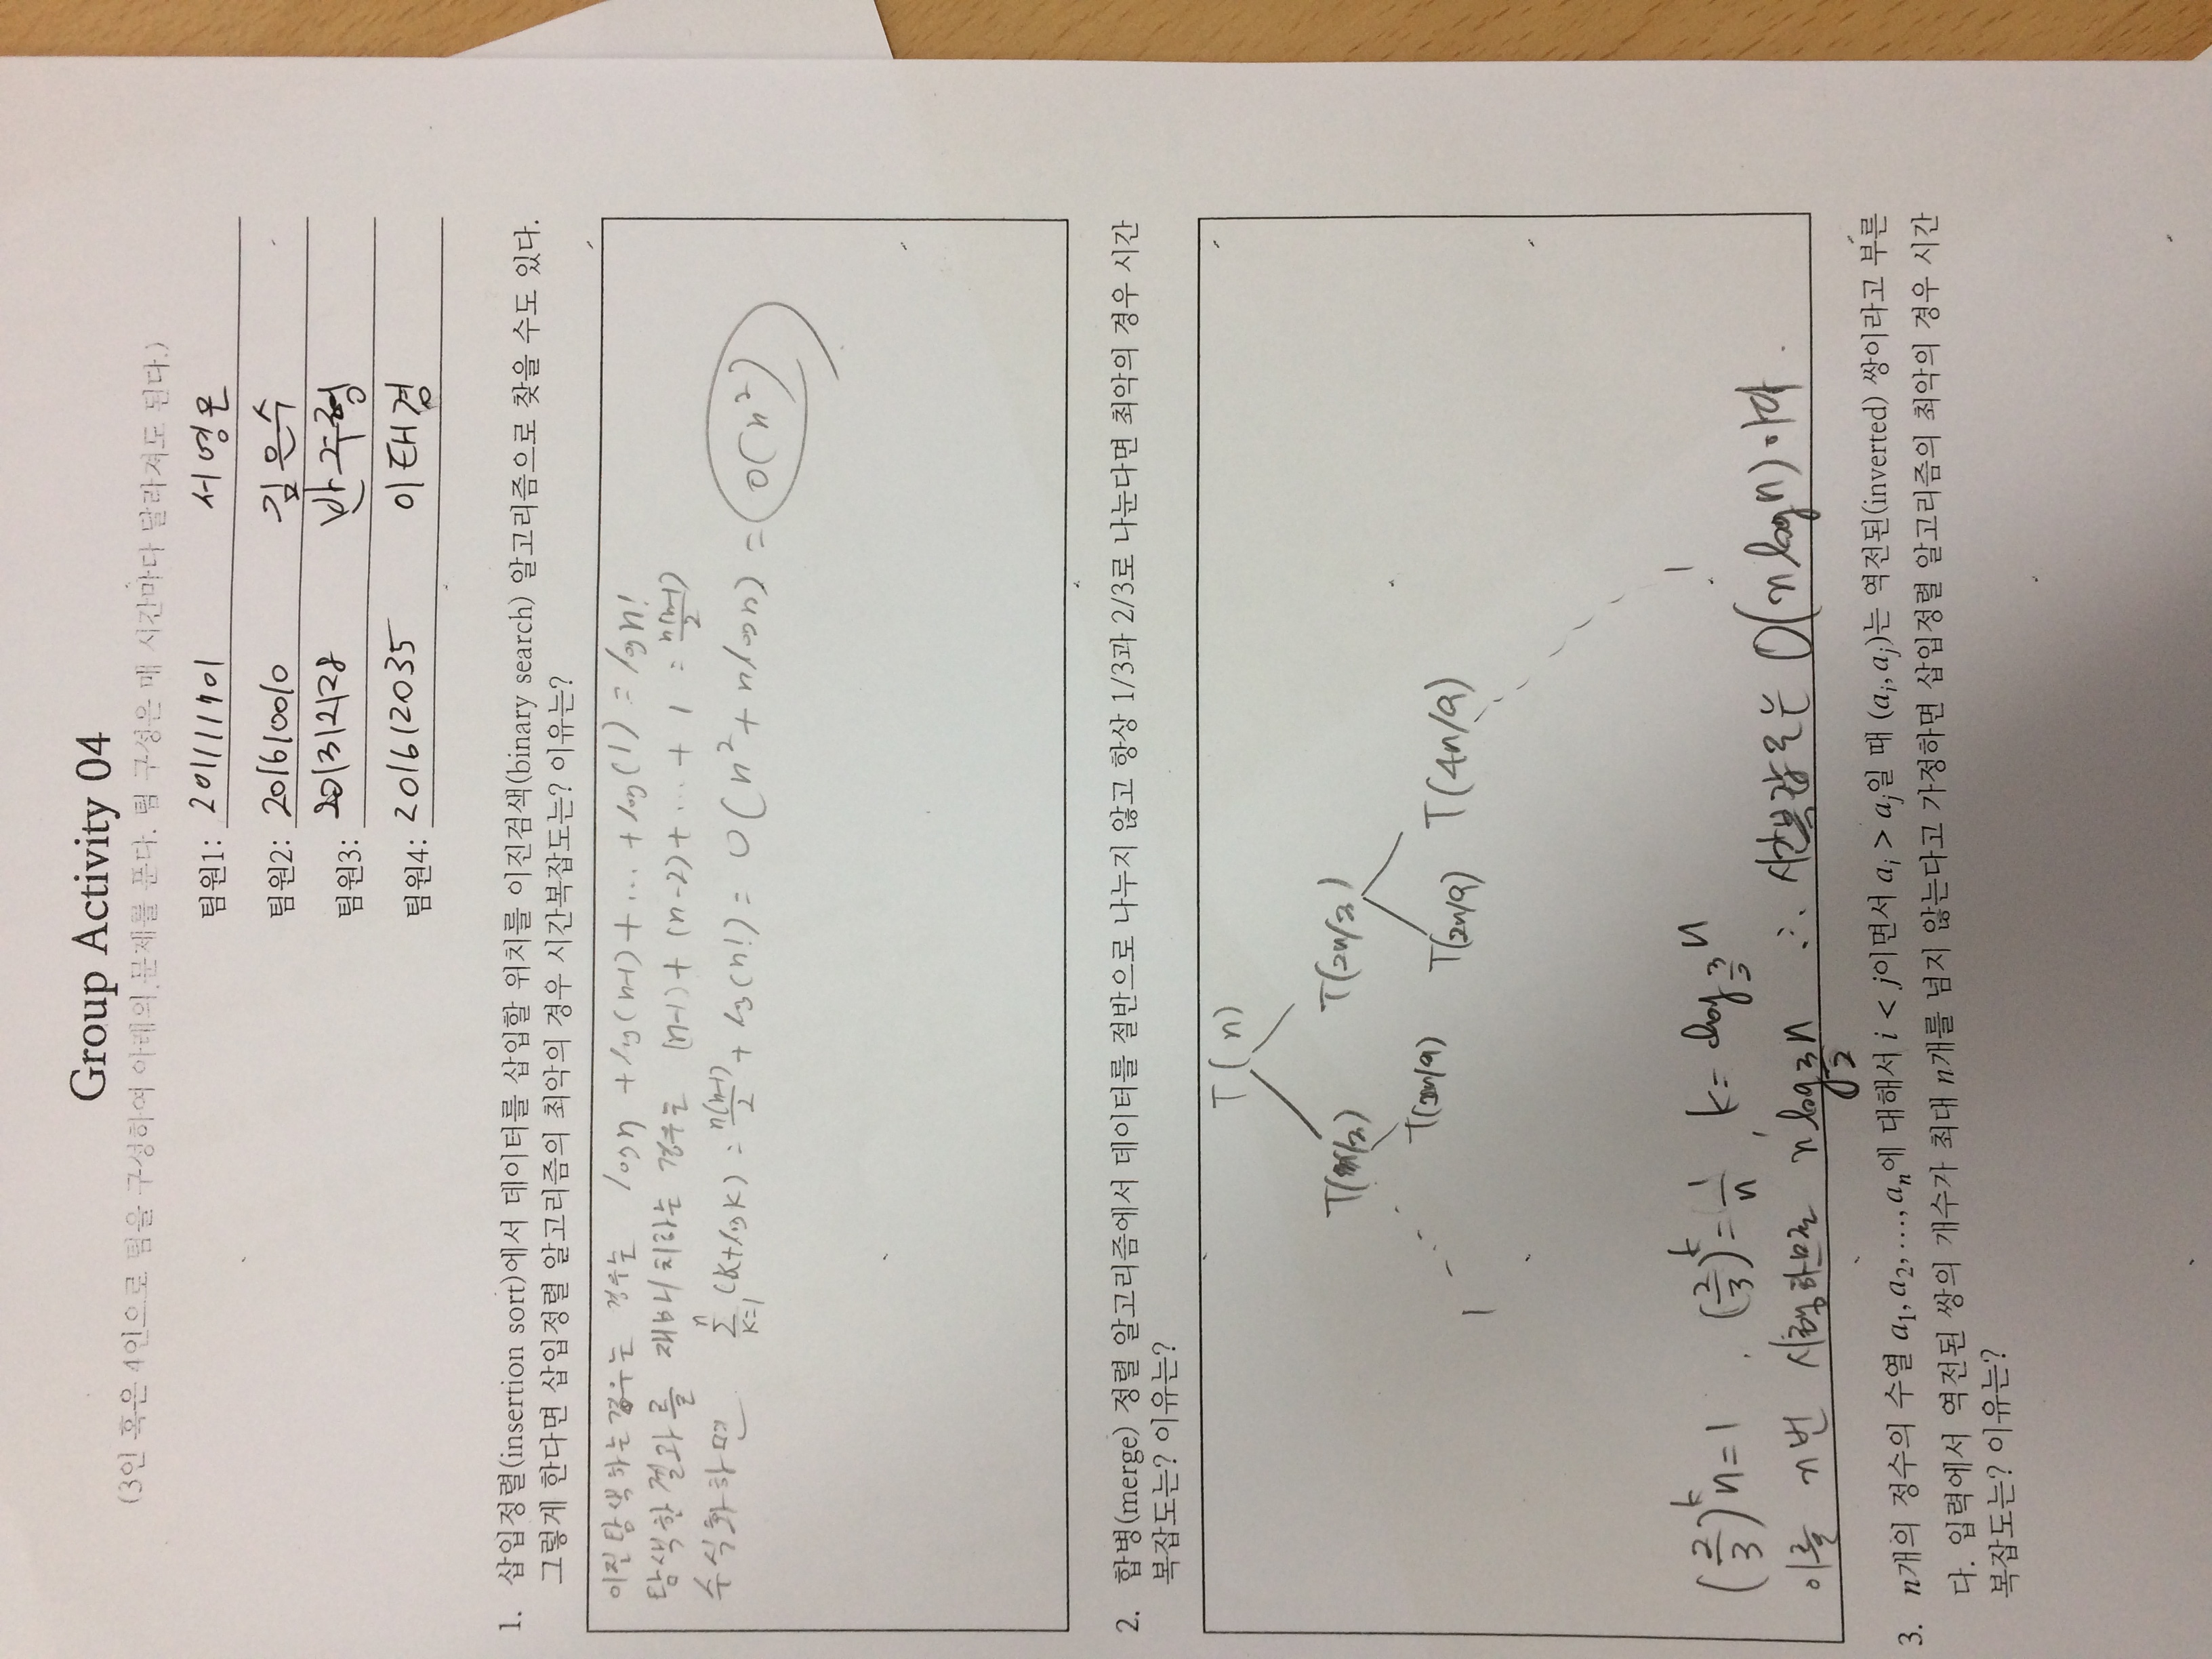 Group Activity 04
(3인 혹은 4인으로 팀을 구성하여 아래의 문제를 푼다. 팀 구성은 매 시간마다 달라져도 된다.)
팀원1: 201111101 서영은
팀원2: 201610010 김은수
팀원3: 201312128 반주형
팀원4: 201612035 이태경
1. 삽입정렬(insertion sort)에서 데이터를 삽입할 위치를 이진검색(binary search) 알고리즘으로 찾을 수도 있다.
그렇게 한다면 삽입정렬 알고리즘의 최악의 경우 시간복잡도는? 이유는?
이진탐색하는경우는 경우는 logn + log(n-1) + ... + log(1) = logn!
탐색한 결과를 재배치하는 경우는 (n-1) + (n-2) + ... + 1 = n(n-1)/2
수식화하면 ∑_{k=1}^{n} (k+logk) = n(n-1)/2 + log(n!) = O(n² + nlogn) = O(n²)
2. 합병(merge) 정렬 알고리즘에서 데이터를 절반으로 나누지 않고 항상 1/3과 2/3로 나눈다면 최악의 경우 시간
복잡도는? 이유는?
T(n)
T(n/3) T(2n/3)
T(2n/9) T(2n/9) T(4n/9)
1
1
(2/3)^k n = 1 , (2/3)^k = 1/n , k = log_{3/2} n
이를 n번 시행하므로 n log_{3/2} n ∴ 시간복잡도는 O(n log n) 이다.
3. n개의 정수의 수열 a₁, a₂, ..., aₙ에 대해서 i < j이면서 aᵢ > aⱼ일 때 (aᵢ, aⱼ)는 역전된(inverted) 쌍이라고 부른
다. 입력에서 역전된 쌍의 개수가 최대 n개를 넘지 않는다고 가정하면 삽입정렬 알고리즘의 최악의 경우 시간
복잡도는? 이유는?